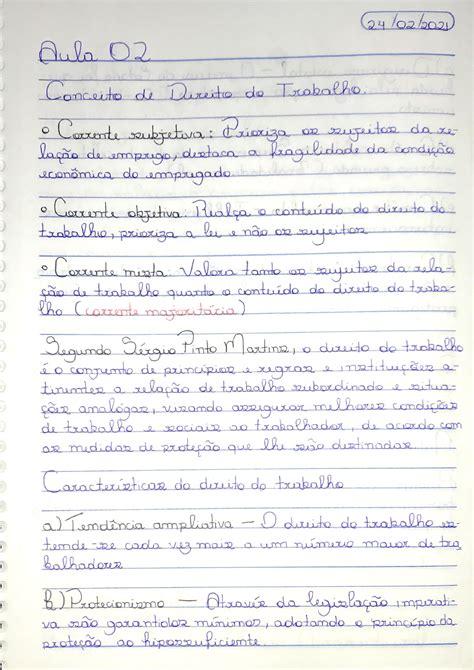 24/02/2021
Aula 02
Conceito de Direito do Trabalho.
• Corrente subjetiva: Prioriza os sujeitos da re-
lação de emprego, destaca a fragilidade da condição
econômica do empregado.
• Corrente objetiva: Realça o conteúdo do direito do
trabalho, prioriza a lei e não os sujeitos
• Corrente mista: Valora tanto os sujeitos da rela-
ção de trabalho quanto o conteúdo do direito do traba-
lho (corrente majoritária)
Segundo Sérgio Pinto Martins, o direito do trabalho
é o conjunto de princípios e regras e instituições a-
tinentes a relação de trabalho subordinado e situa-
ções análogas, visando assegurar melhores condições
de trabalho e sociais ao trabalhador, de acordo com
as medidas de proteção que lhe são destinadas
Características do direito do trabalho
a) Tendência ampliativa — O direito do trabalho es-
tende-se cada vez mais a um número maior de tra
balhadores
b) Protecionismo — Através da legislação imperati-
va são garantidos mínimos, adotando o princípio da
proteção ao hipossuficiente.